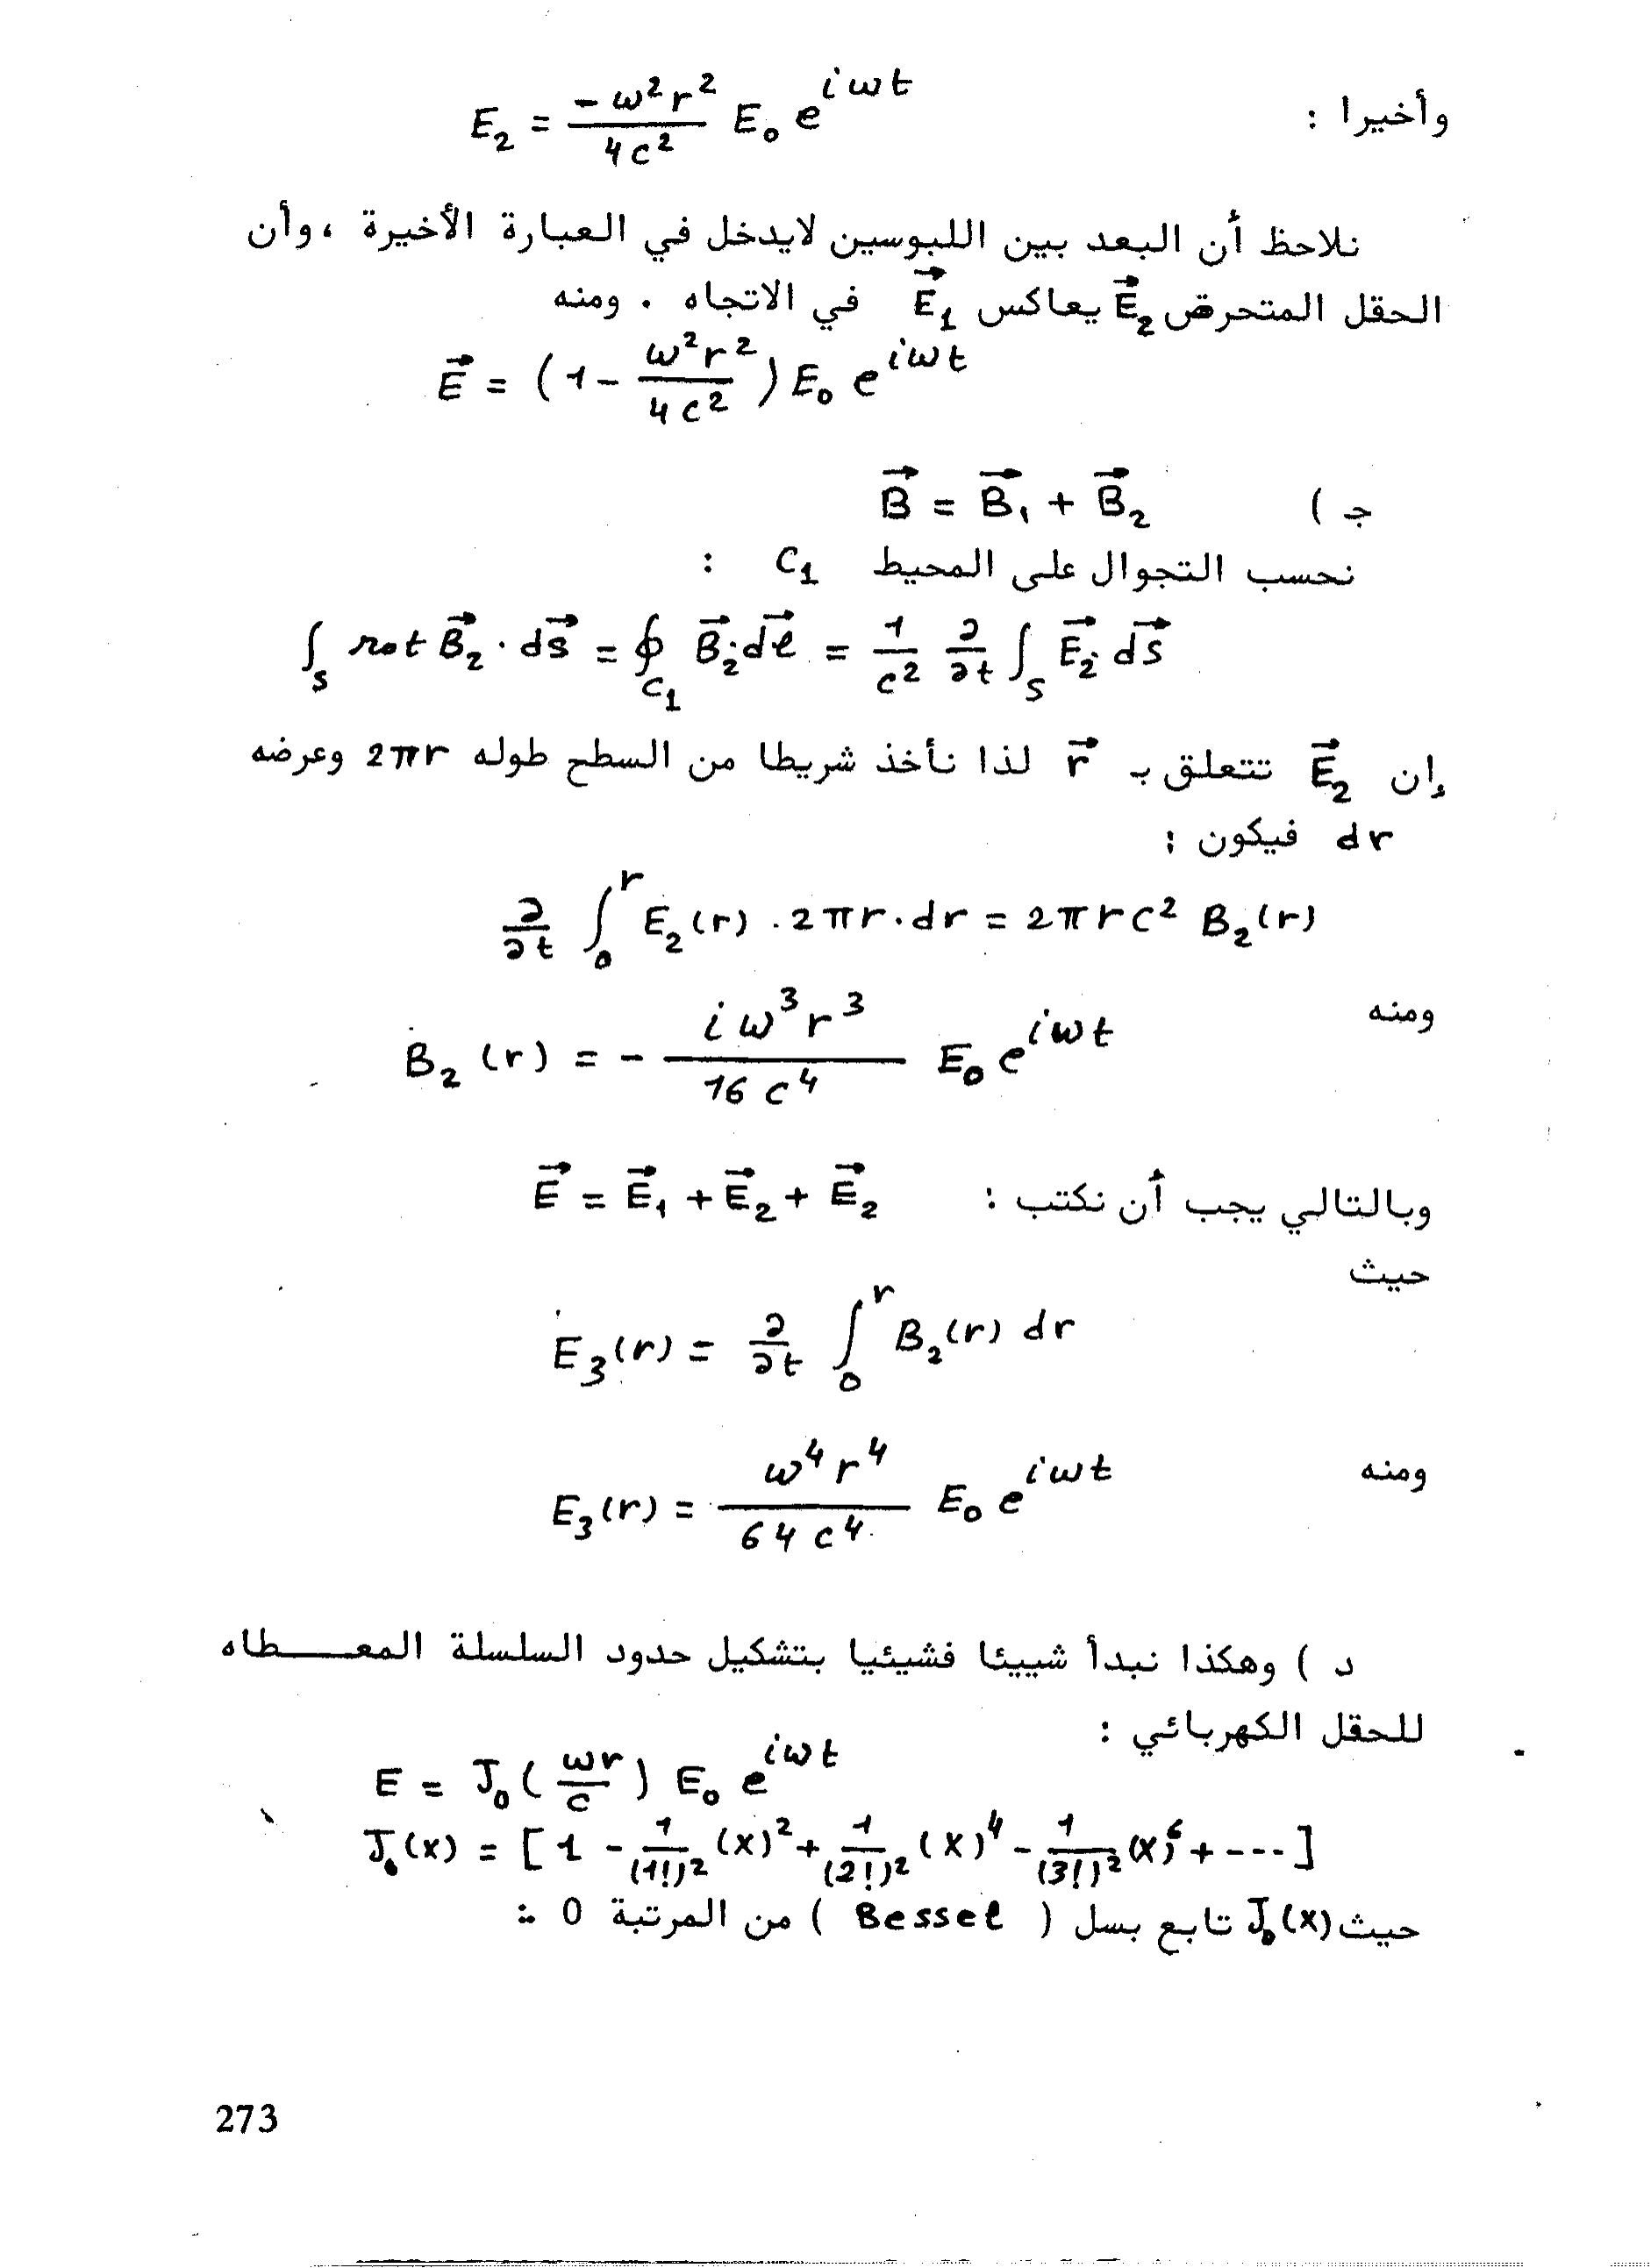 وأخيرا : E₂ = \frac{-ω² r²}{4c²} E₀ e^{iωt}
نلاحظ أن البعد بين اللبوسين لايدخل في العبارة الأخيرة ،وأن
الحقل المتحرض \vec{E}₂ يعاكس \vec{E}₁ في الاتجاه . ومنه
\vec{E} = (1 - \frac{ω² r²}{4c²}) E₀ e^{iωt}
جـ ) \vec{B} = \vec{B}₁ + \vec{B}₂
نحسب التجوال على المحيط C₁ :
∫_S rot \vec{B}₂ . d\vec{s} = ∮_{C₁} \vec{B}₂ . d\vec{l} = \frac{1}{c²} \frac{∂}{∂t} ∫_S \vec{E}₂ . d\vec{s}
إن \vec{E}₂ تتعلق بـ \vec{r} لذا نأخذ شريطا من السطح طوله 2πr وعرضه
dr فيكون :
\frac{∂}{∂t} ∫_0^r E₂(r) . 2πr . dr = 2πrc² B₂(r)
ومنه B₂(r) = - \frac{iω³ r³}{16 c⁴} E₀ e^{iωt}
وبالتالي يجب أن نكتب : \vec{E} = \vec{E}₁ + \vec{E}₂ + \vec{E}₂
حيث
E₃(r) = \frac{∂}{∂t} ∫_0^r B₂(r) dr
ومنه E₃(r) = \frac{ω⁴ r⁴}{64 c⁴} E₀ e^{iωt}
د ) وهكذا نبدأ شييئا فشيئيا بتشكيل حدود السلسلة المعـــطاه
للحقل الكهربائي :
E = J₀(\frac{ωr}{c}) E₀ e^{iωt}
J₀(x) = [1 - \frac{1}{(1!)²}(x)² + \frac{1}{(2!)²}(x)⁴ - \frac{1}{(3!)²}(x)⁶ + ---]
حيث J₀(x) تابع بسل ( Bessel ) من المرتبة 0 :
273